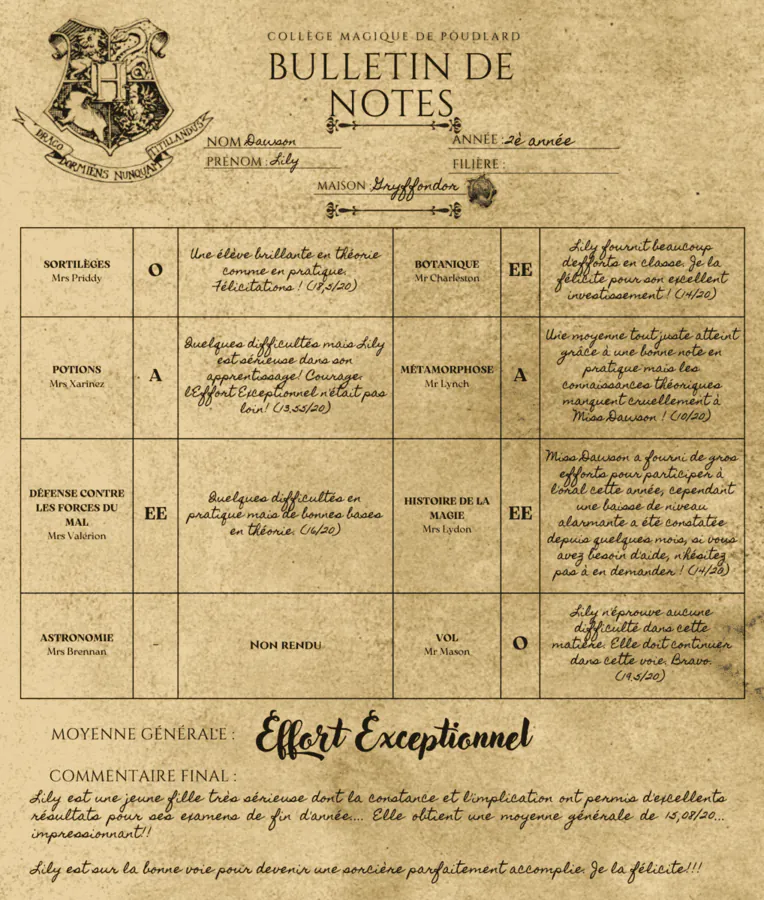 COLLÈGE MAGIQUE DE POUDLARD
BULLETIN DE
NOTES
DRACO
DORMIENS NUNQUAM
TITILLANDUS
H
NOM Dawson
ANNÉE : 2è année
PRÉNOM : Lily
FILIÈRE :
MAISON : Gryffondor
SORTILÈGES
Mrs Priddy
O
Une élève brillante en théorie
comme en pratique.
Félicitations ! (18,5/20)
BOTANIQUE
Mr Charleston
EE
Lily fournit beaucoup
d'efforts en classe. Je la
félicite pour son excellent
investissement ! (14/20)
POTIONS
Mrs Xarinez
A
Quelques difficultés mais Lily
est sérieuse dans son
apprentissage! Courage.
l'Effort Exceptionnel n'était pas
loin! (13.55/20)
MÉTAMORPHOSE
Mr Lynch
A
Une moyenne tout juste atteint
grâce à une bonne note en
pratique mais les
connaissances théoriques
manquent cruellement à
Miss Dawson ! (10/20)
DÉFENSE CONTRE
LES FORCES DU
MAL
Mrs Valérion
EE
Quelques difficultés en
pratique mais de bonnes bases
en théorie. (16/20)
HISTOIRE DE LA
MAGIE
Mrs Lydon
EE
Miss Dawson a fourni de gros
efforts pour participer à
l'oral cette année, cependant
une baisse de niveau
alarmante a été constatée
depuis quelques mois, si vous
avez besoin d'aide, n'hésitez
pas à en demander ! (14/20)
ASTRONOMIE
Mrs Brennan
-
NON RENDU
VOL
Mr Mason
O
Lily n'éprouve aucune
difficulté dans cette
matière. Elle doit continuer
dans cette voie. Bravo.
(19,5/20)
MOYENNE GÉNÉRALE : Effort Exceptionnel
COMMENTAIRE FINAL :
Lily est une jeune fille très sérieuse dont la constance et l'implication ont permis d'excellents
résultats pour ses examens de fin d'année.... Elle obtient une moyenne générale de 15,08/20...
impressionnant!!
Lily est sur la bonne voie pour devenir une sorcière parfaitement accomplie. Je la félicite!!!